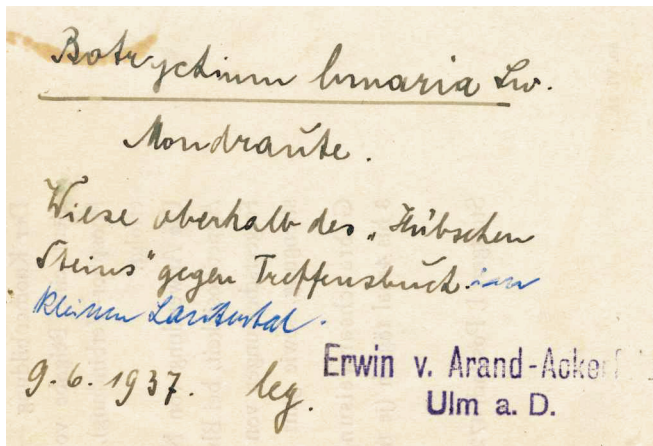 Botrychium lunaria Sw.
Mondraute.
Wiese oberhalb des „Hübschen
Steins" gegen Treffensbuch im
kleinen Lautertal.
9.6.1937. leg.
Erwin v. Arand-Acker
Ulm a. D.